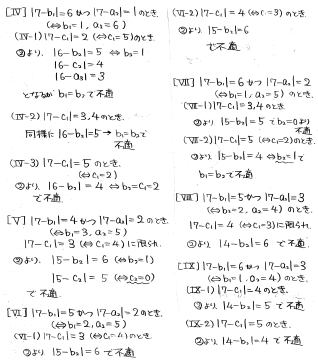 [IV] |7-b₁|=6 かつ |7-a₃|=1のとき
(⇔b₁=1, a₃=6)
(IV-1) |7-c₁|=2 (⇔c₁=5)のとき
②より, 16-b₂|=5 ⇔b₂=1
16-c₂|=4
16-a₃|=3
となるが b₁=b₂で不適
(IV-2) |7-c₁|=3,4のとき.
同様に |6-b₂|=5 → b₁=b₂で
不適
(IV-3) |7-c₁|=5 のとき
(⇔c₁=2)
②より, 16-b₂|=4 ⇔b₂=c₁=2
で不適
[V] |7-b₁|=4かつ|7-a₂|=2のとき
(⇔b₁=3, a₂=5)
|7-c₁|=3 (⇔c₁=4)に限られ
②より, |5-b₂|=6 (⇔b₂=1)
|5-c₂|=5 (⇔c₂=0)
で不適
[VI] |7-b₁|=5かつ|7-a₂|=2のとき.
(⇔b₁=2, a₂=5)
(VI-1) |7-c₁|=3 (⇔c₁=4)のとき
②より |5-b₂|=6で不適
(VI-2) |7-c₁|=4 (⇔c₁=3)のとき
②より, |5-b₂|=6
で不適
[VII] |7-b₁|=6かつ|7-a₂|=2
(⇔b₁=1, a₂=5)のとき.
(VII-1) |7-c₁|=3,4のとき
②より |5-b₂|=5でb₂=0より
不適
(VII-2) |7-c₁|=5 (⇔c₁=2)のとき.
②より |5-b₂|=4 ⇔b₂=1で
b₁=b₂で不適
[VIII] |7-b₁|=5かつ|7-a₂|=3
(⇔b₁=2, a₂=4)のとき.
|7-c₁|=4 (⇔c₁=3)に限られ
②より |4-b₂|=6 で不適
[IX] |7-b₁|=6かつ|7-a₂|=3
(⇔b₁=1, a₂=4)のとき.
(IX-1) |7-c₁|=4のとき.
②より |4-b₂|=5 で不適
(IX-2) |7-c₁|=5のとき.
②より |4-b₂|=4で不適